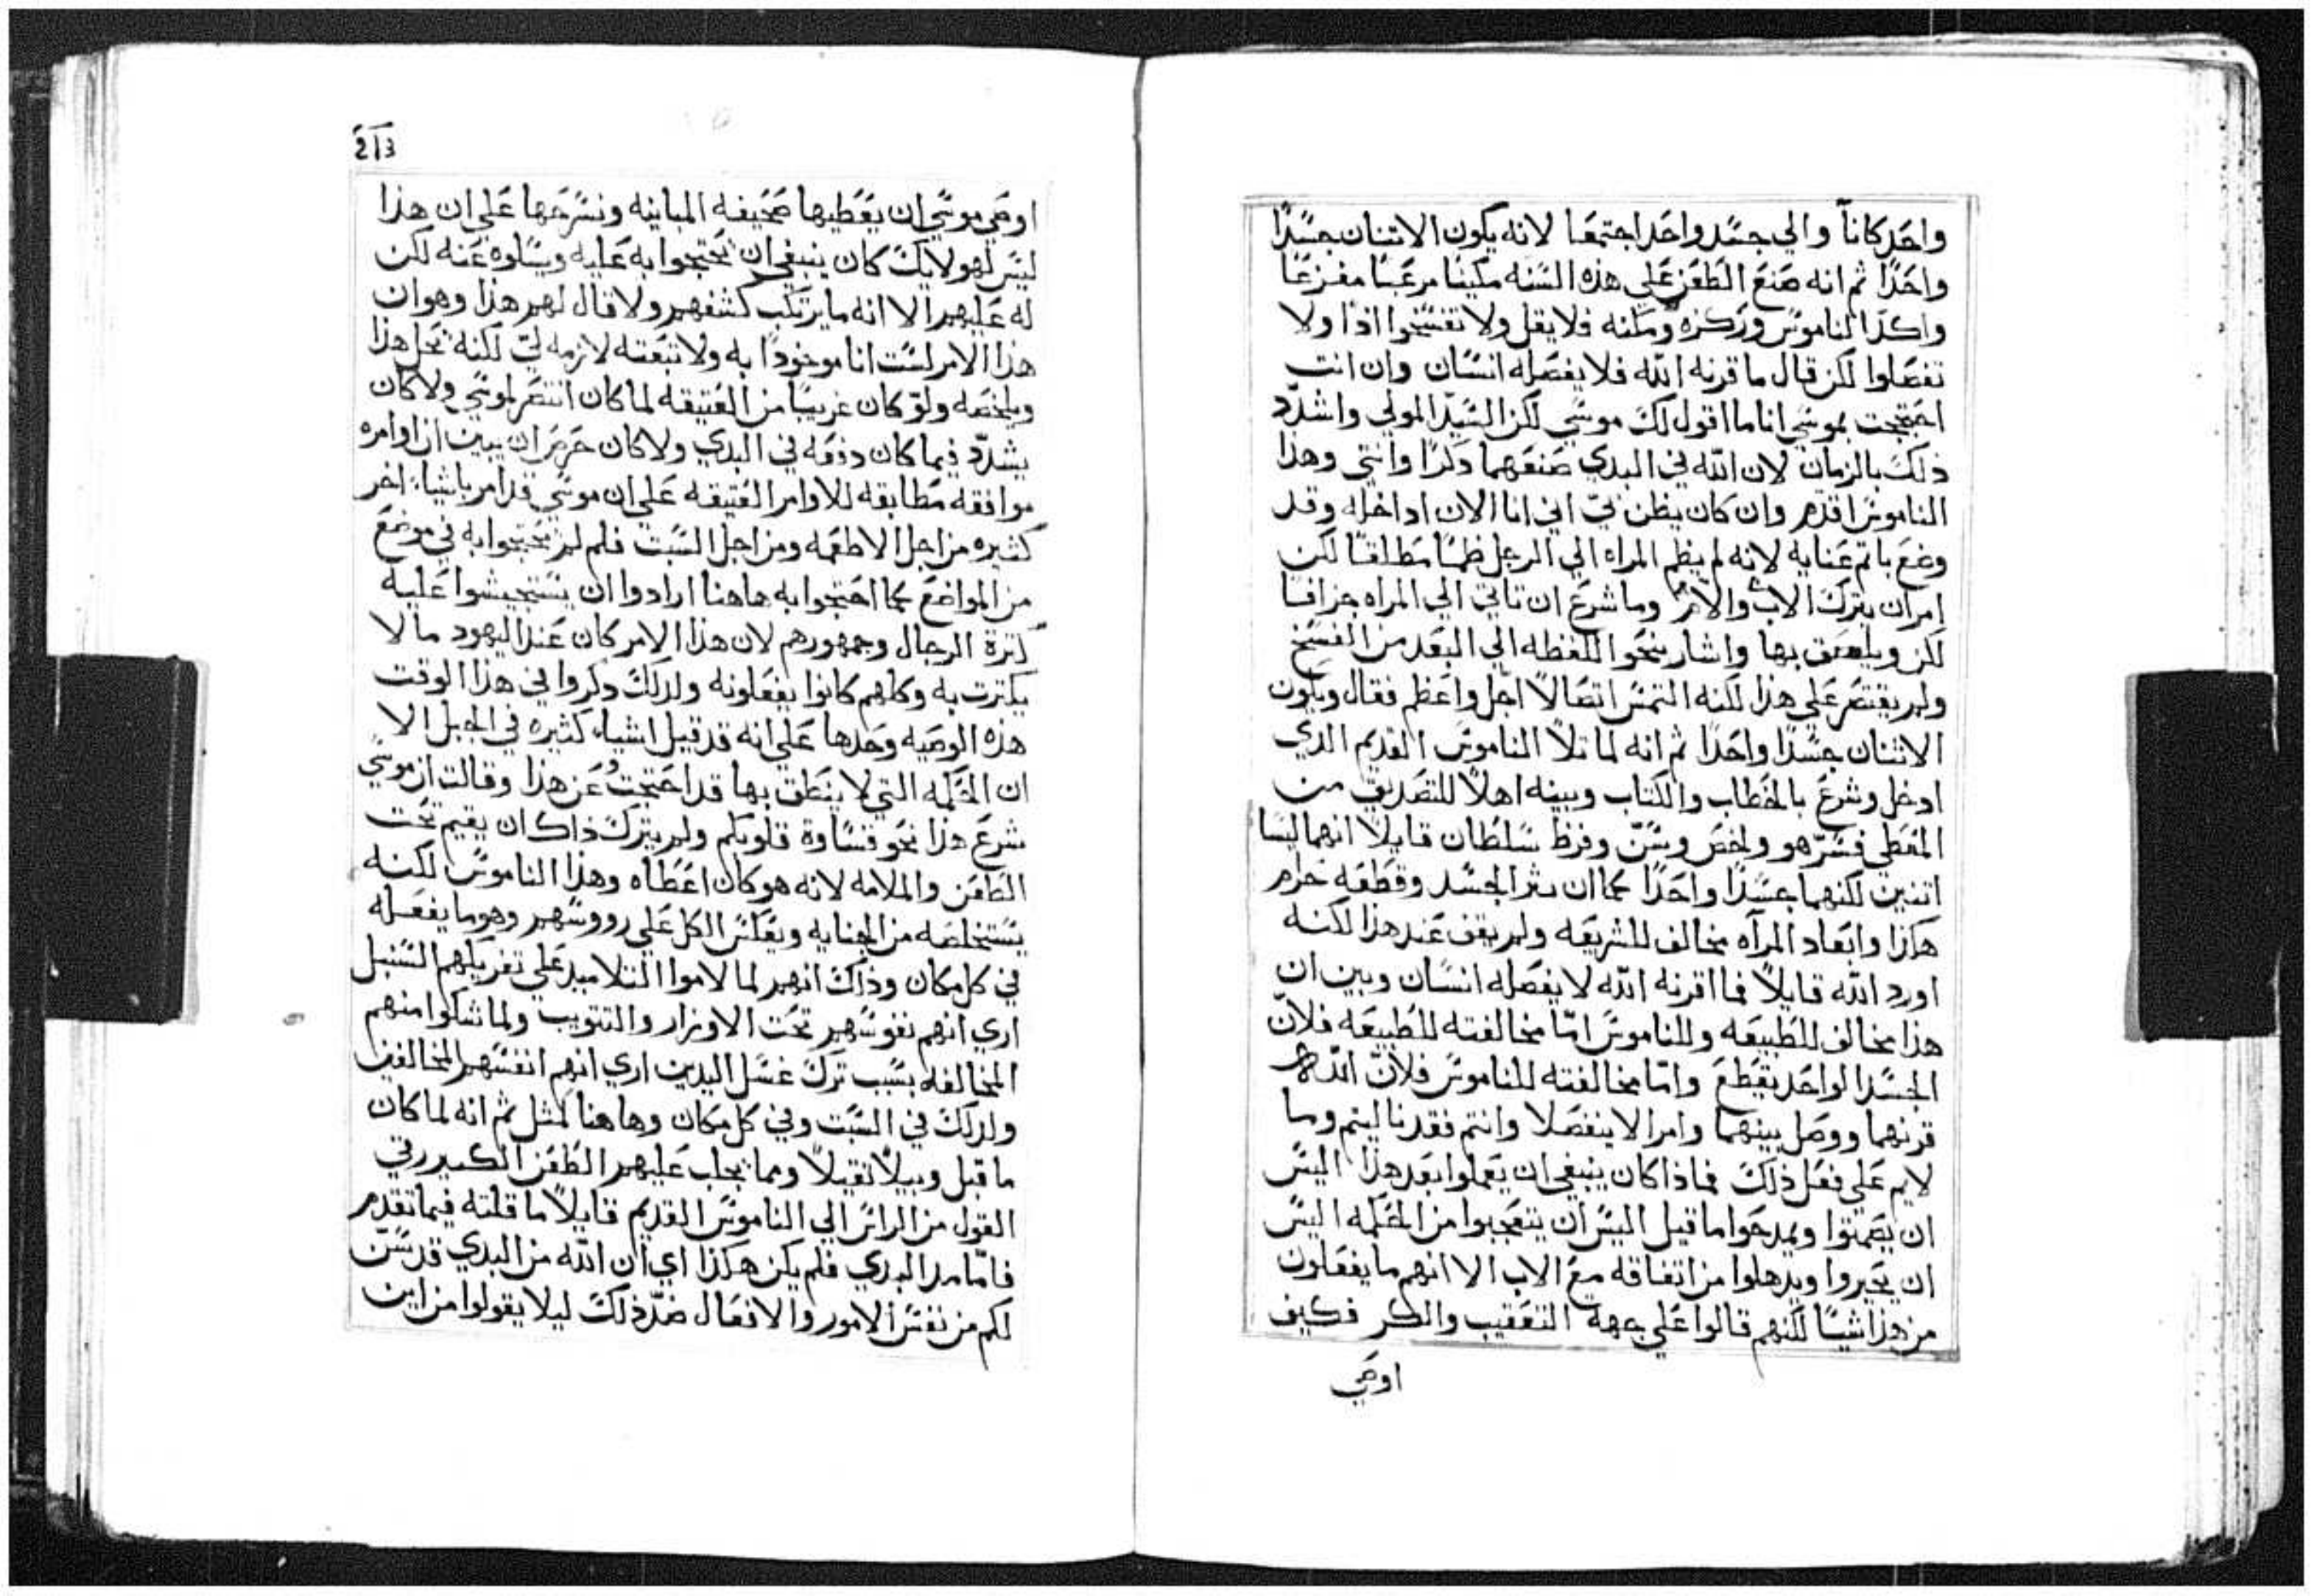 واحد كانا والي جسد واحد اجتمعا لانه يكون الاتنان جسدًا
واحدًا ثم انه صنع الطعن علي هذه السنه مكينا مرعبا مفزعًا
واكد الناموس وركزه ومكنه فلا يقل ولا تفسخوا اذًا ولا
تفصلوا لكن قال ما قرنه الله فلا يفصله انسان وان انت
احتججت بموسي انا ما اقول لك موسي لكن السيد المولي واشدّد
ذلك بالزمان لان الله في البدي صنعهما دكرًا وانتي وهذا
الناموس اقدم وان كان يظن بيّ اني انا الان ادخله وقد
وضع باتم عنايه لانه لم يظم المراه الي الرجل ظمًا مطلقًا لكن
امر ان يترك الاب والام وما شرع ان تاتي الي المراه جزافًا
لكن ويلصق بها واشار بنحو اللفظه الي البعد من الفسخ
ولم يقتصر علي هذا لكنه التمس اتصالاً اجل واعظم فقال ويكون
الاتنان جسدًا واحدًا ثم انه لما تلا الناموس القديم الدي
ادخل وشرع بالخطاب والكتاب وبينه اهلاً للتصديق من
المعطي فسّر هو ولخص وسنّ وفرظ سلطان قايلاً انهما ليسا
اتنين لكنهما جسدًا واحدًا كما ان بتر الجسد وقطعه حرام
هكذا وابعاد المراه مخالف للشريعه ولم يقف عند هذا لكنه
اورد الله قايلاً فما اقرنه الله لا يفصله انسان وبين ان
هذا مخالف للطبيعه وللناموس امّا مخالفته للطبيعه فلانّ
الجسد الواحد يقطع وامّا مخالفته للناموس فلانّ الله
قرنهما ووصل بينهما وامر الا ينفصلا وانتم فقد ناليتم وما
لايم علي فعل ذلك فماذا كان ينبغي ان يعملوا بعد هذا اليس
ان يصمتوا ويمدحوا ما قيل اليس ان يتعجبوا من الحكمه اليس
ان يحيروا ويدهلوا من اتفاقه مع الاب الا انهم ما يفعلون
من هذا شيًا لكنهم قالوا علي جهة التعقيب والكر فكيف
اوصي
213
اوصي موسي ان يعطيها صحيفه المباينه ونسرحها علي ان هذا
ليس لهولايك كان ينبغي ان يحتجوا به عليه ويسلوه عنه لكن
له عليهم الا انه ما يرتكب كشفهم ولا قال لهم هذا وهو ان
هذا الامر لست انا موخودًا به ولا تبعته لازمه ليّ لكنه يحل هذا
ويلخصه ولو كان غريبًا من العتيقه لما كان انتصر لموسي ولا كان
يشدّد فيما كان دفعه في البدي ولا كان حرص ان يبين ان اوامره
موافقه مطابقه للاوامر العتيقه علي ان موسي قد امر باشياء اخر
كثيره من اجل الاطعمه ومن اجل السبت فلم لم يحتجوا به في موضع
من المواضع كما احتجوا به هاهنا ارادوا ان يستجيشوا عليه
كترة الرجال وجمهورهم لان هذا الامر كان عند اليهود ما لا
يكترت به وكلهم كانوا يفعلونه ولدلك دكروا في هذا الوقت
هذه الوصيه وحدها علي انه قد قيل اشياء كثيره في الجبل الا
ان الحكمه التي لا ينطق بها قد احتجت عن هذا وقالت ان موسي
شرع هذا نحو قساوة قلوبكم ولم يترك ذاك ان يقيم تحت
الطعن والملامه لانه هو كان اعطاه وهذا الناموس لكنه
يستخلصه من الجنايه ويعكس الكل علي رووسهم وهو ما يفعله
في كل مكان وذاك انهم لما لاموا التلاميد علي تفريكهم السنبل
اري انهم نفوسهم تحت الاوزار والتتويب ولما شكوا منهم
المخالفه بسبب ترك غسل اليدين اري انهم انفسهم المخالفين
ولدلك في السبت وفي كل مكان وهاهنا لمثل ثم انه لما كان
ما قيل وبيلاً تقيلاً ومما يجلب عليهم الطعن الكبير رقي
القول من الراس الي الناموس القديم قايلاً ما قلته فيما تقدم
فامّا مدا البدي فلم يكن هكذا اي ان الله من البدي قد سنّ
لكم من نفس الامور والافعال ضدّ ذلك ليلا يقولوا من اين